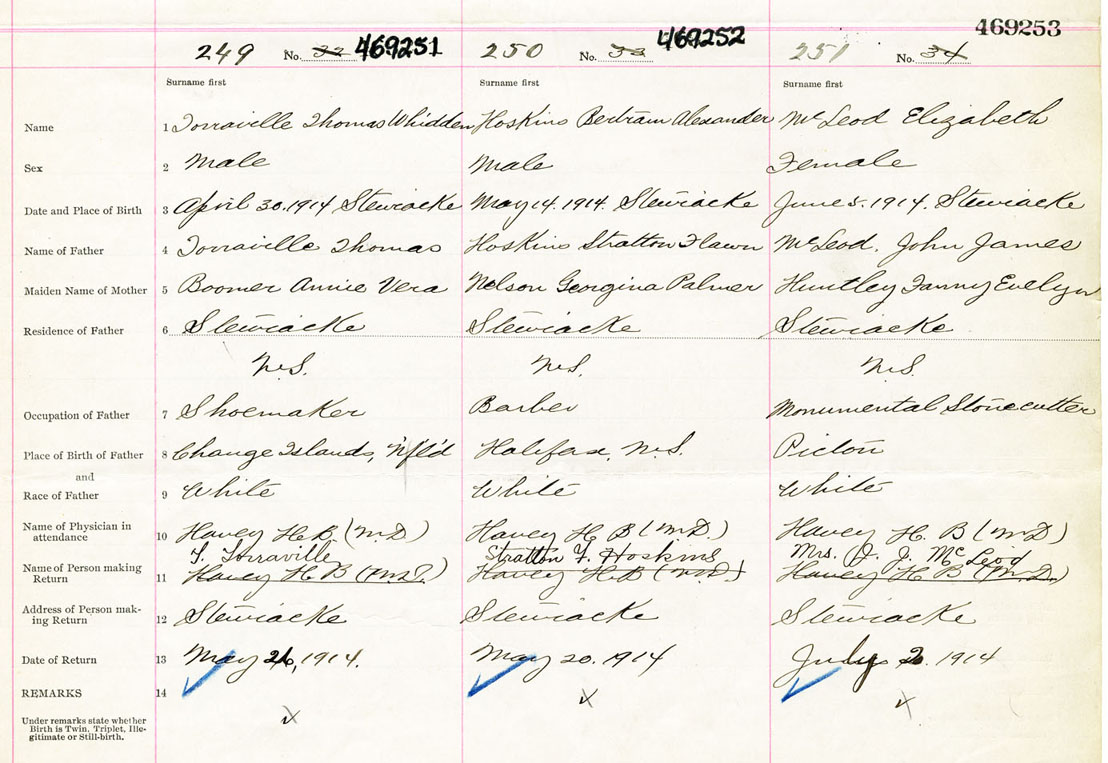 469253
249 No. 32 469251 250 No. 33 469252 251 No. 34
Surname first Surname first Surname first
Name 1 Torraville Thomas Whidden Hoskins Bertram Alexander McLeod Elizabeth
Sex 2 Male Male Female
Date and Place of Birth 3 April 30. 1914 Stewiacke May 14. 1914. Stewiacke June 5. 1914. Stewiacke
Name of Father 4 Torraville Thomas Hoskins Stratton Flawn McLeod, John James
Maiden Name of Mother 5 Boomer Annie Vera Nelson Georgina Palmer Huntley Fanny Evelyn
Residence of Father 6 Stewiacke Stewiacke Stewiacke
N.S. N.S. N.S.
Occupation of Father 7 Shoemaker Barber Monumental Stonecutter
Place of Birth of Father 8 Change Islands, Nfld Halifax, N.S. Pictou
and
Race of Father 9 White White White
Name of Physician in
attendance 10 Havey H. B (M.D) Havey H. B (M.D.) Havey H. B (M.D)
T. Torraville Stratton F. Hoskins Mrs. J. J. McLeod
Name of Person making
Return 11 Havey H B (M.D.) Havey H. B (M.D.) Havey H. B (M.D.)
Address of Person mak-
ing Return 12 Stewiacke Stewiacke Stewiacke
Date of Return 13 May 26, 1914. May 20. 1914 July 2. 1914
REMARKS 14
Under remarks state whether
Birth is Twin, Triplet, Ille-
gitimate or Still-birth.